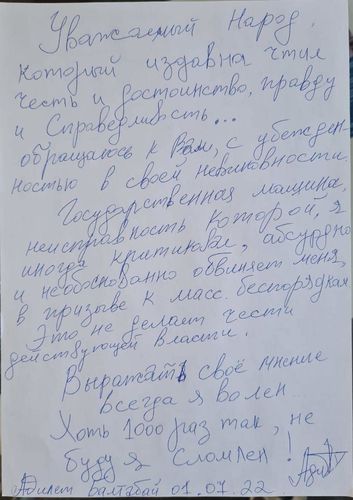 Уважаемый Народ,
который издавна чтил
честь и достоинство, правду
и Справедливость...
обращаюсь к Вам, с убежден-
ностью в своей невиновности.
Государственная машина,
неисправность которой, я
иногда критиковал, абсурдно
и необоснованно обвиняет меня,
в призыве к масс. беспорядкам
Это не делает чести
действующей власти.
Выражать своё мнение
всегда я волен
Хоть 1000 раз так, не
буду я сломлен!
Адилет Балтабай 01.07.22